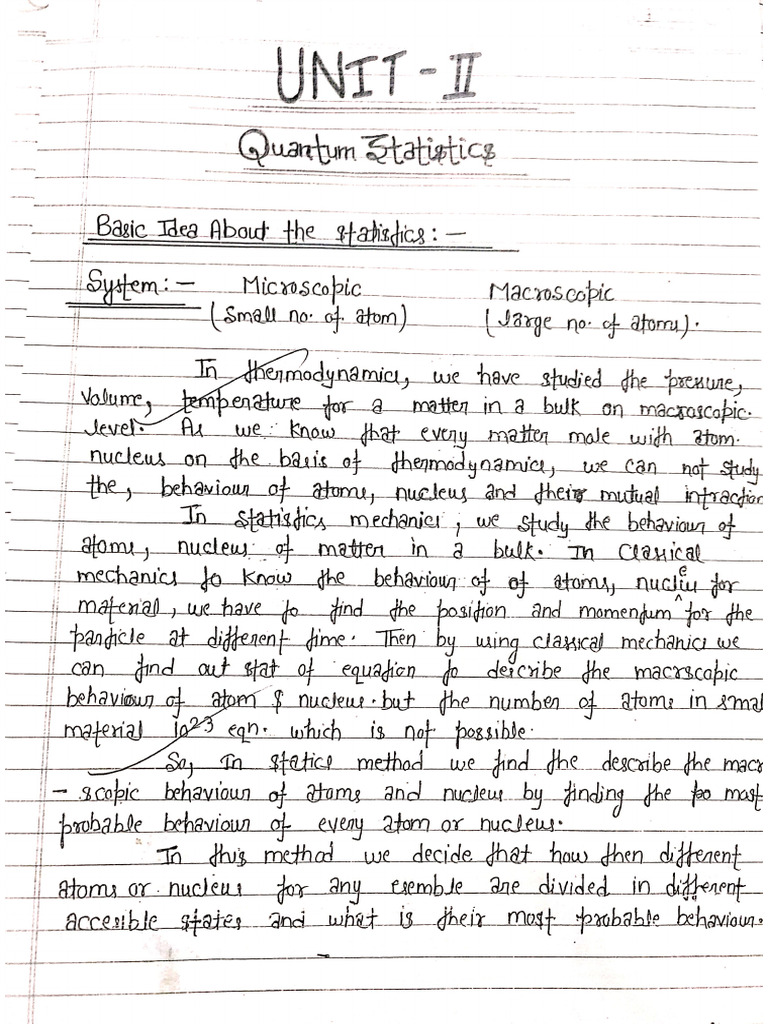 UNIT - II
Quantum Statistics
Basic Idea About the statistics : -
System : - Microscopic Macroscopic
(small no. of atom) (large no. of atoms).
In thermodynamics, we have studied the pressure,
Volume, temperature for a matter in a bulk on macroscopic.
level. As we know that every matter male with atom.
nucleus on the basis of thermodynamics, we can not study
the, behaviour of atoms, nucleus and their mutual intraction
In statistics mechanics, we study the behaviour of
atoms, nucleus of matter in a bulk. In Classical
mechanics to know the behaviour of of atoms, nucleus for
material, we have to find the position and momentum for the
particle at different time. Then by using classical mechanics we
can find out stat of equation to describe the macrscopic
behaviour of atom & nucleus. but the number of atoms in small
material 10²³ eqn. which is not possible.
So, In statics method we find the describe the macr
- scopic behaviour of atoms and nucleus by finding the most
probable behaviour of every atom or nucleus.
In this method we decide that how then different
atoms or nucleus for any esemble are divided in different
accesible states and what is their most probable behaviour.